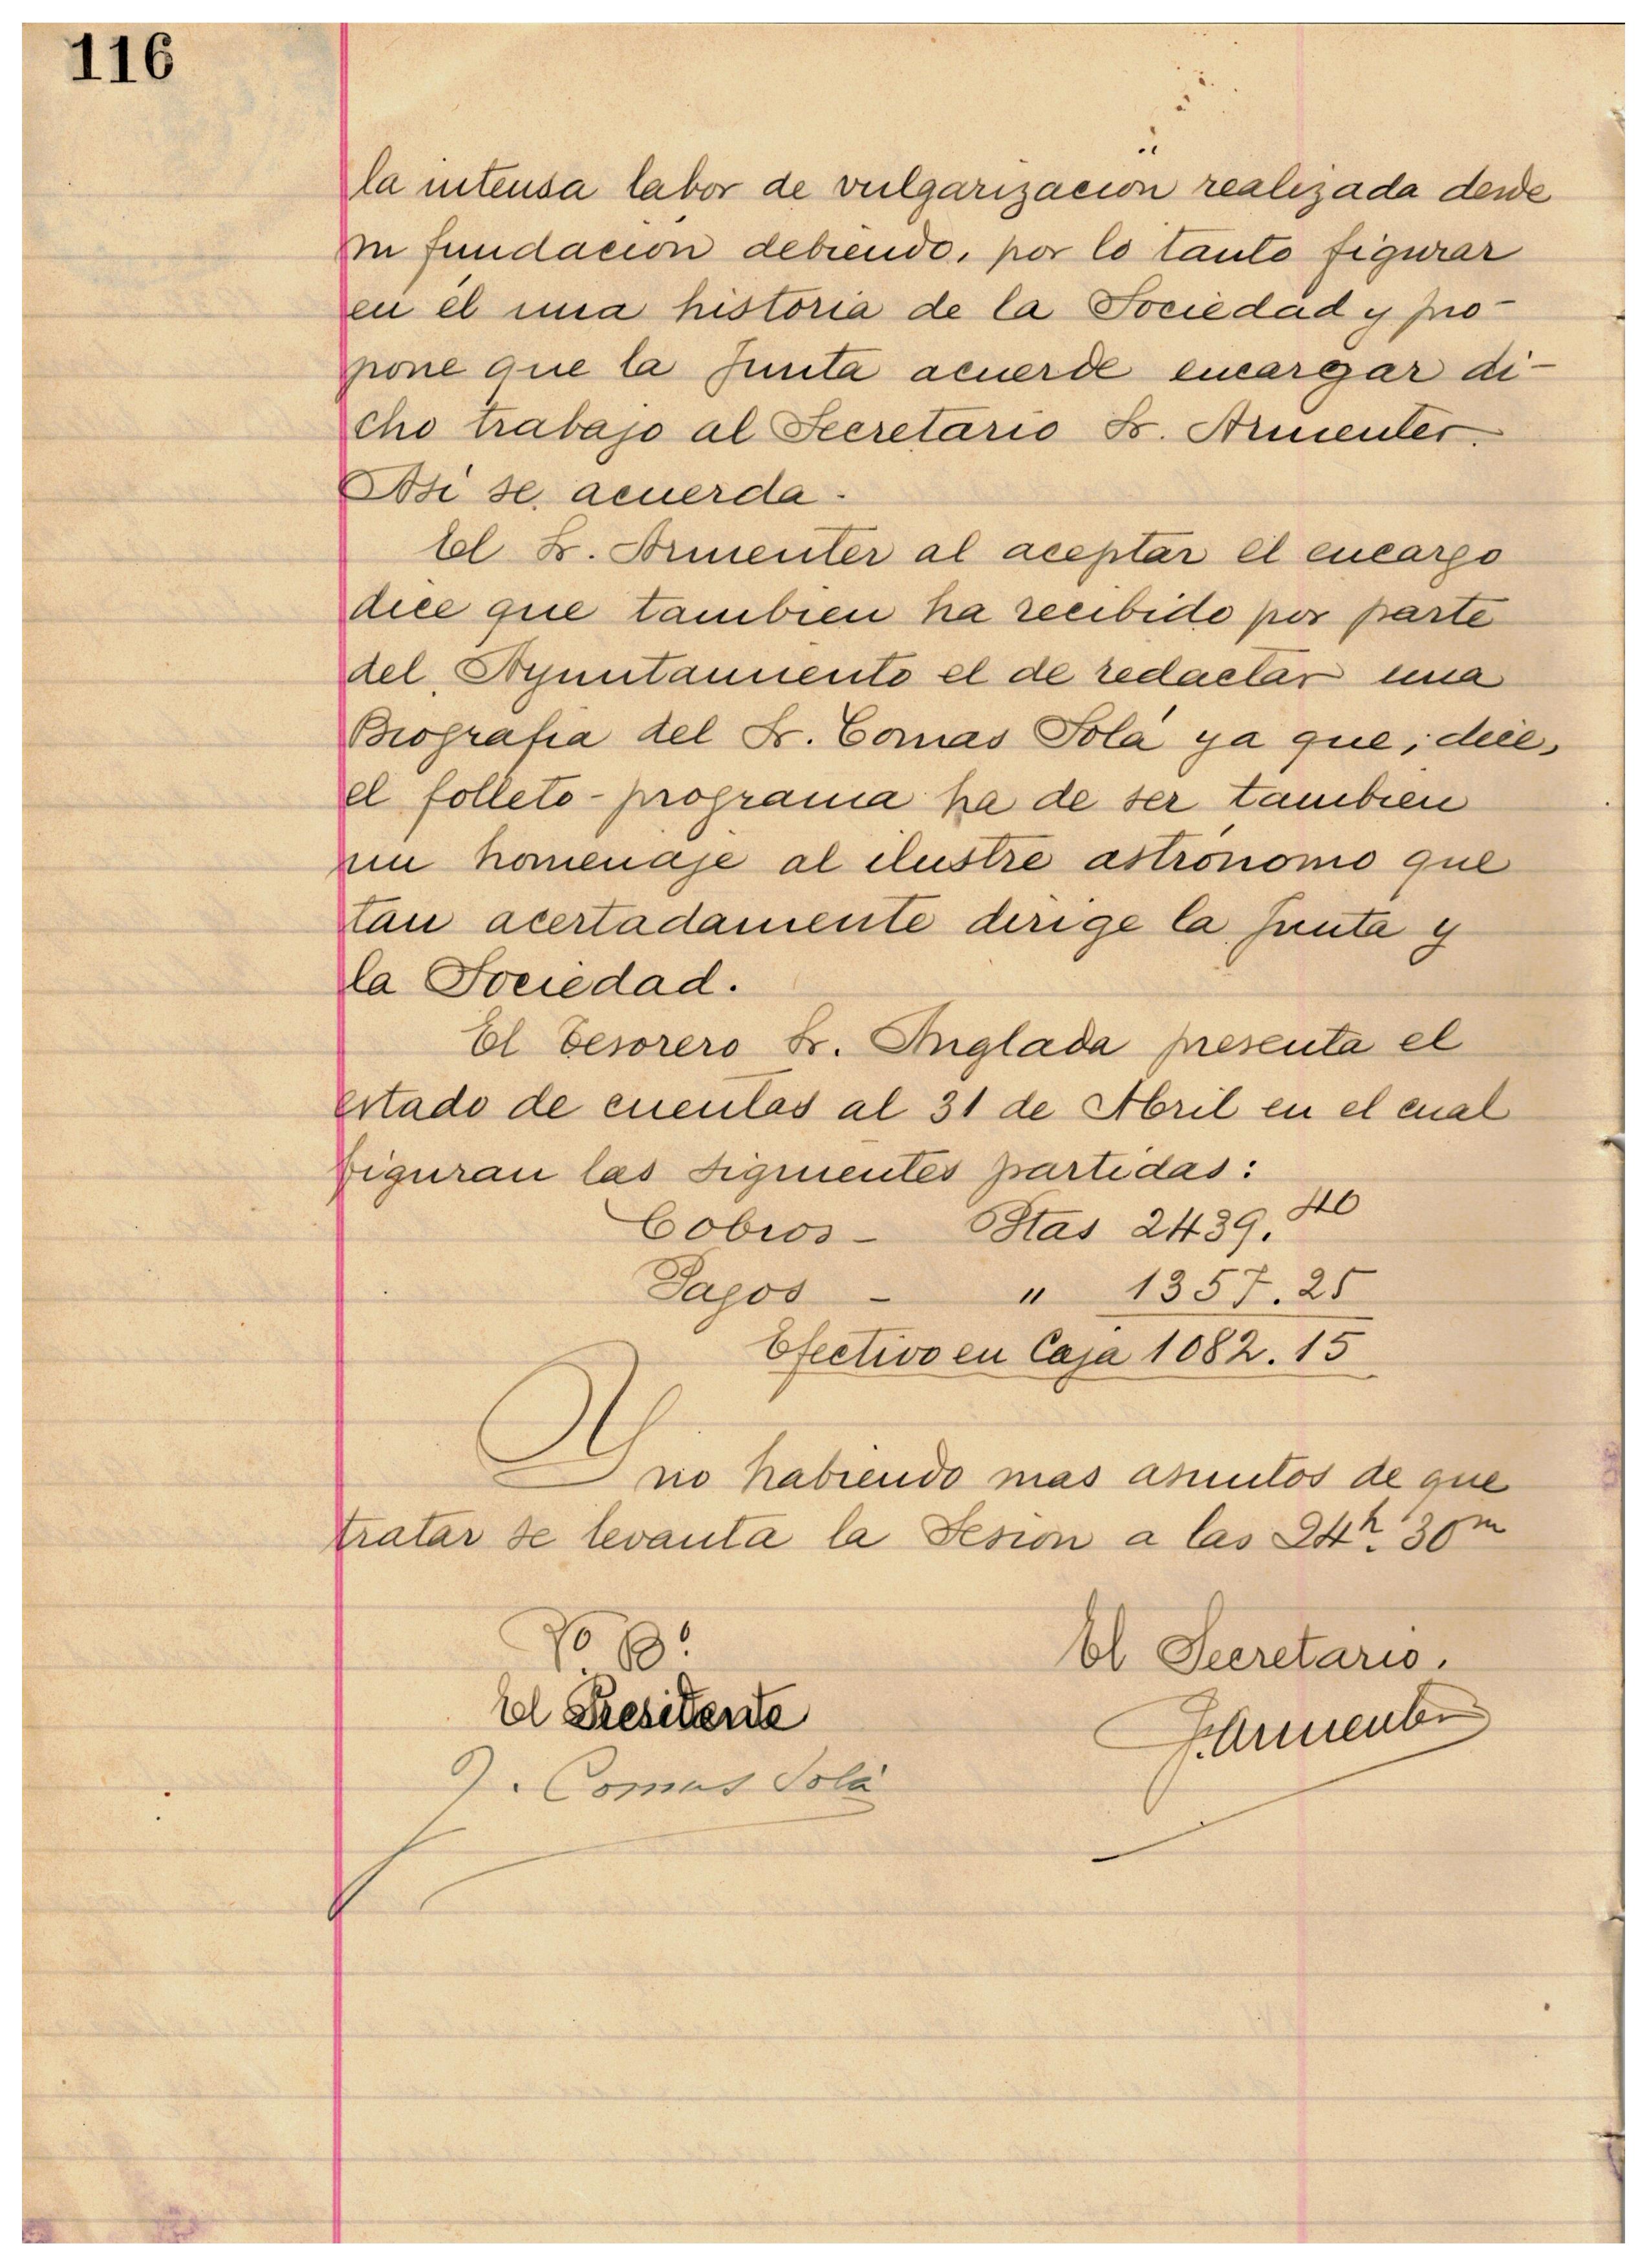 116
la intensa labor de vulgarizacion realizada desde
su fundación debiendo, por lo tanto figurar
en él una historia de la Sociedad y pro-
pone que la Junta acuerde encargar di-
cho trabajo al Secretario Sr. Armenter.
Asi se acuerda.
El Sr. Armenter al aceptar el encargo
dice que tambien ha recibido por parte
del Ayuntamiento el de redactar una
Biografia del Sr. Comas Solá ya que, dice,
el folleto-programa ha de ser tambien
un homenaje al ilustre astrónomo que
tan acertadamente dirige la Junta y
la Sociedad.
El Tesorero Sr. Anglada presenta el
estado de cuentas al 31 de Abril en el cual
figuran las siguientes partidas:
Cobros - Ptas 2439.40
Pagos - " 1357.25
Efectivo en Caja 1082.15
Y no habiendo mas asuntos de que
tratar se levanta la Sesion a las 24h. 30m
Vo. Bo.
El Secretario.
El Presidente
F. Armenter
J. Comas Solá